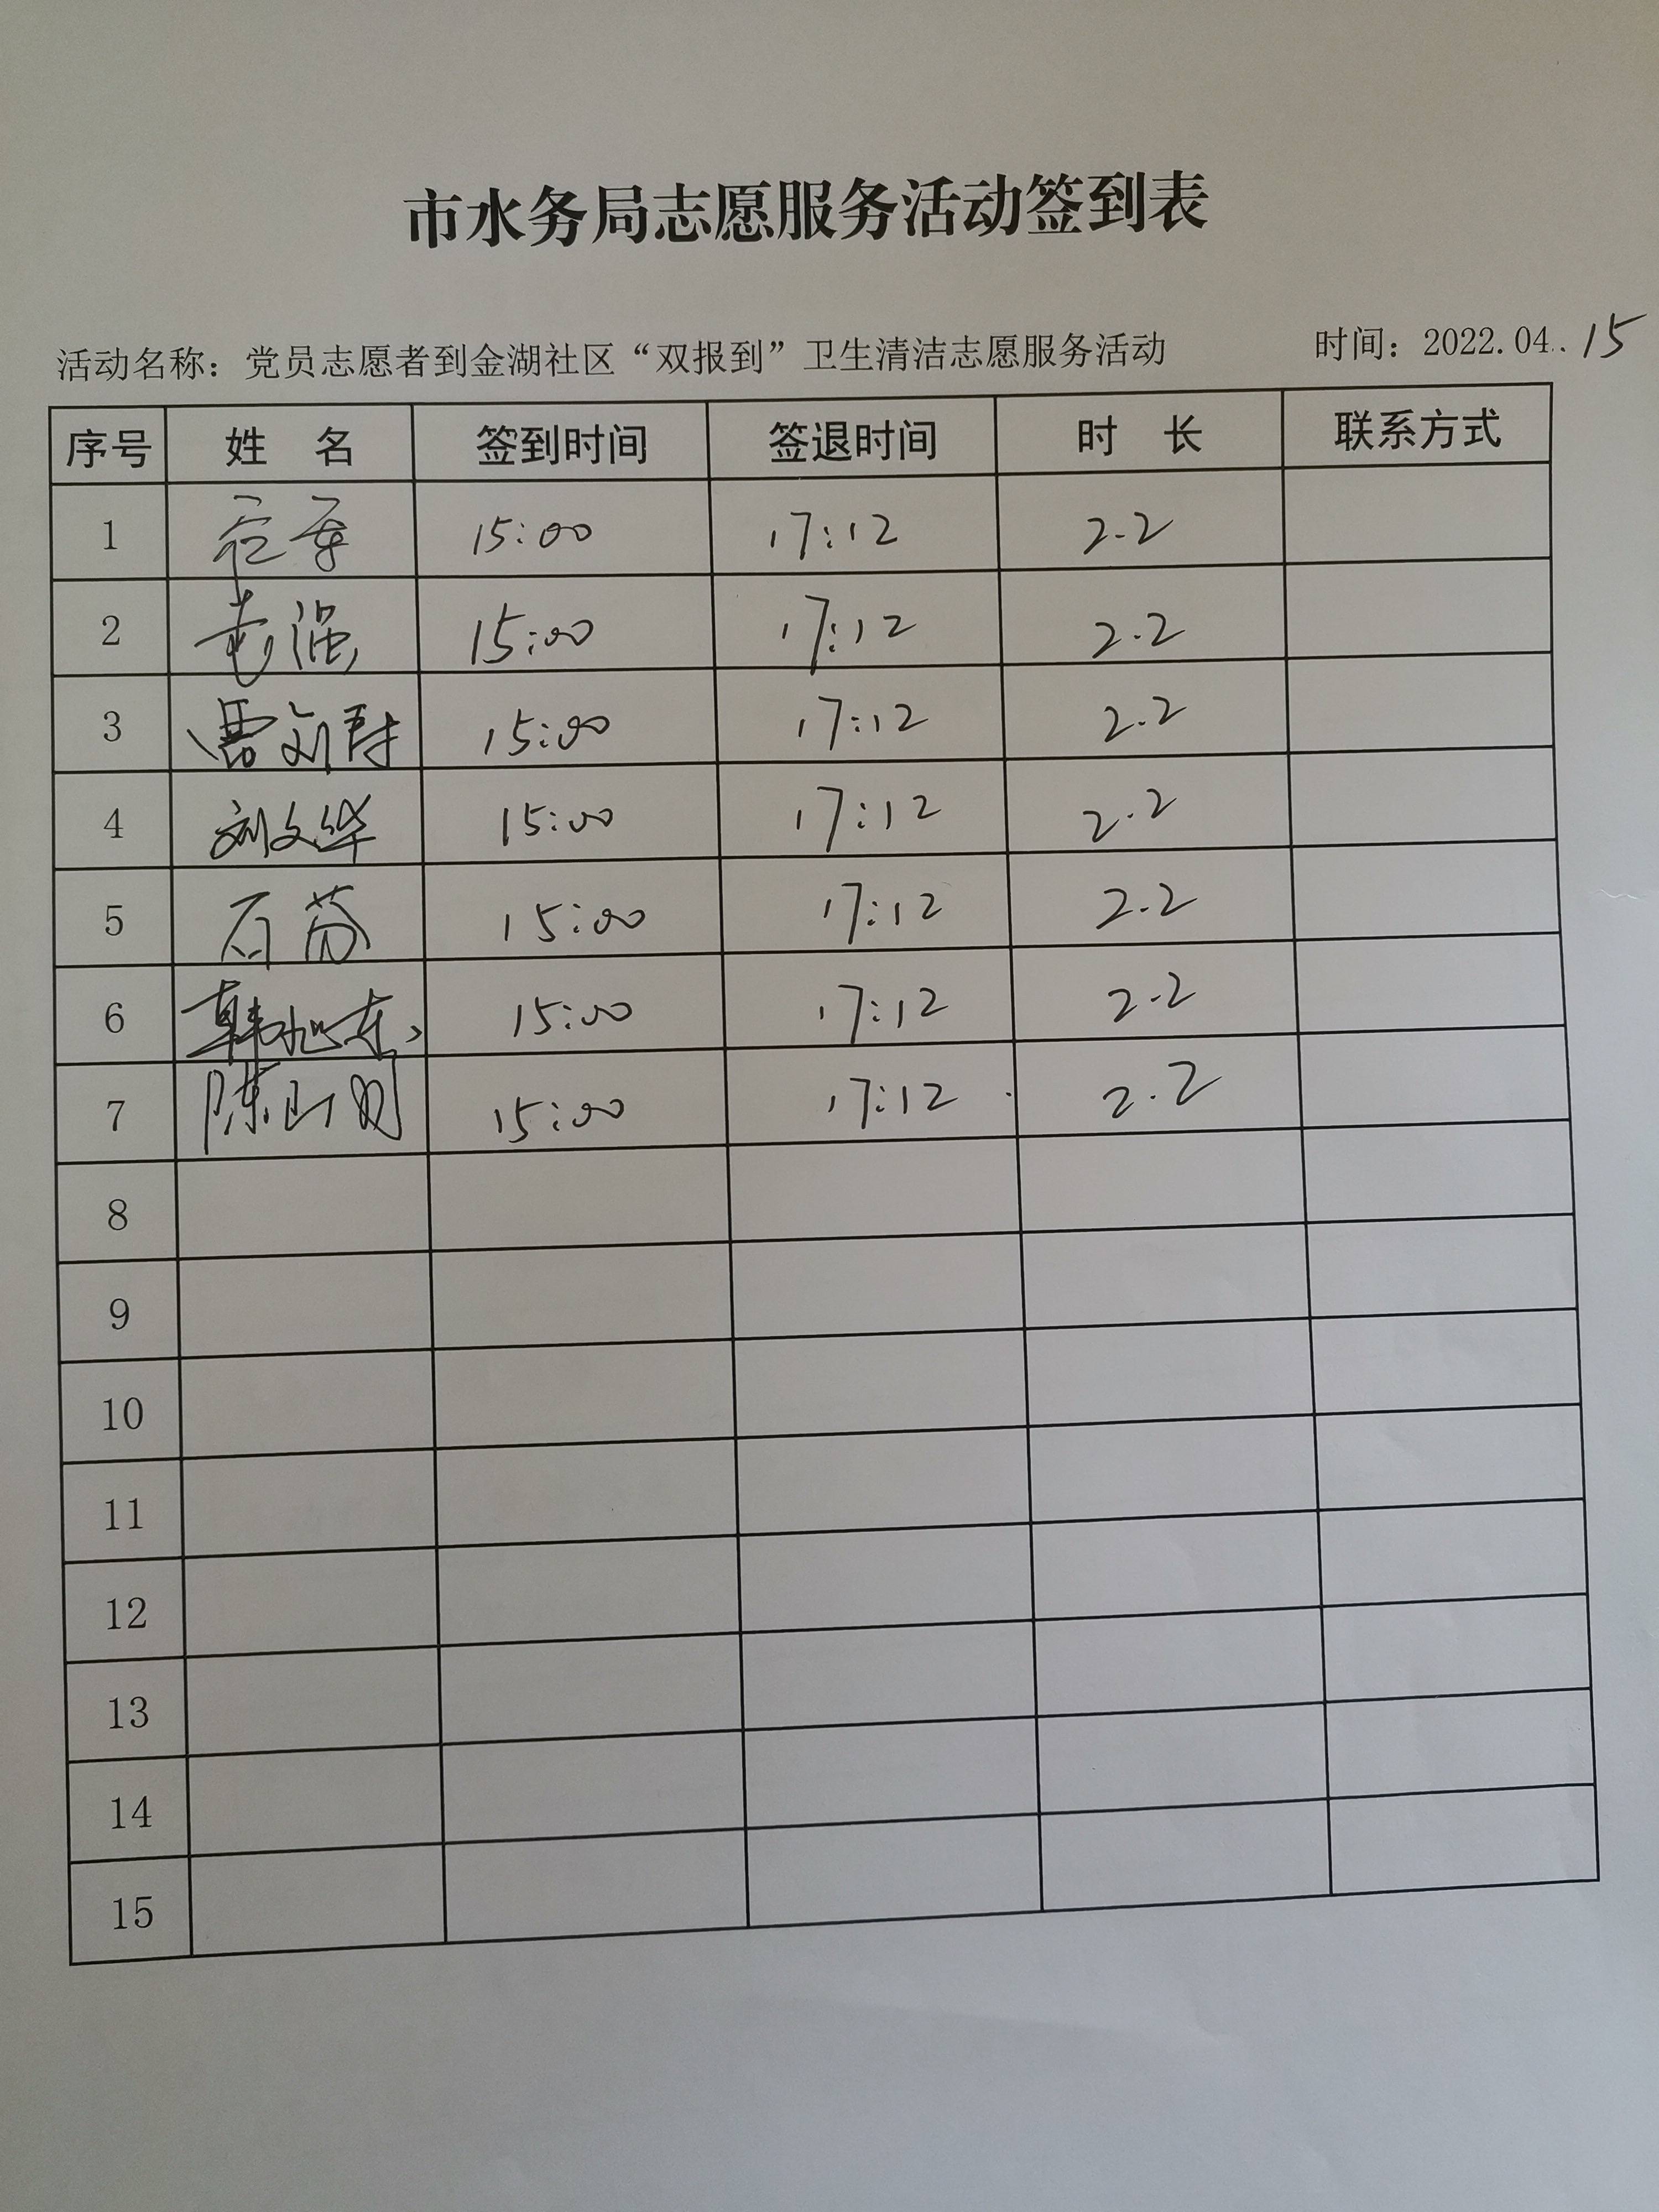 市水务局志愿服务活动签到表
活动名称：党员志愿者到金湖社区“双报到”卫生清洁志愿服务活动 时间：2022.04..15
序号 姓 名 签到时间 签退时间 时 长 联系方式
1 15:00 17:12 2.2
2 15:00 17:12 2.2
3 15:00 17:12 2.2
4 刘文华 15:00 17:12 2.2
5 石芬 15:00 17:12 2.2
6 韩旭东 15:00 17:12 2.2
7 15:00 17:12 2.2
8
9
10
11
12
13
14
15